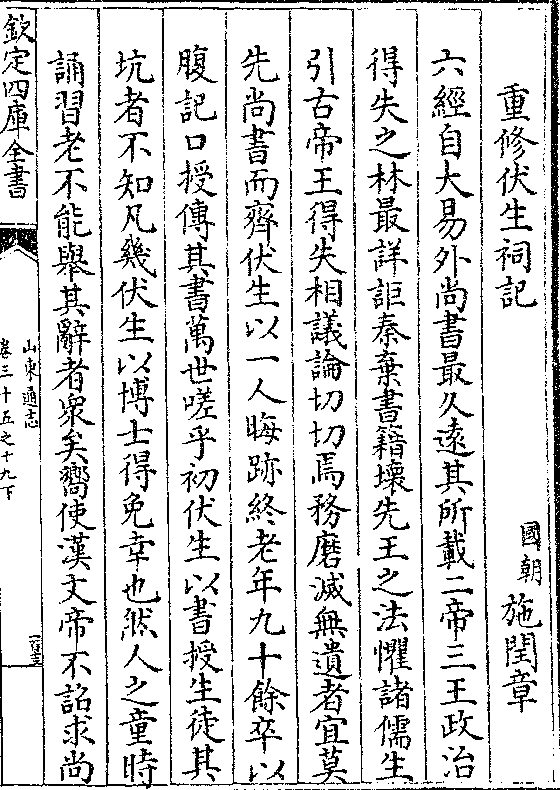 重修伏生祠記
國朝施閏章
六經自大易外尚書最久遠其所載二帝三王政治
得失之林最詳詎秦棄書籍壞先王之法懼諸儒生
引古帝王得失相議論切切焉務磨滅無遺者宜莫
先尚書而齊伏生以一人晦跡終老年九十餘卒以
腹記口授傳其書萬世嗟乎初伏生以書授生徒其
坑者不知凡幾伏生以博士得免幸也然人之童時
誦習老不能舉其辭者衆矣嚮使漢文帝不詔求尚
欽定四庫全書
山東通志
卷三十五之十九下